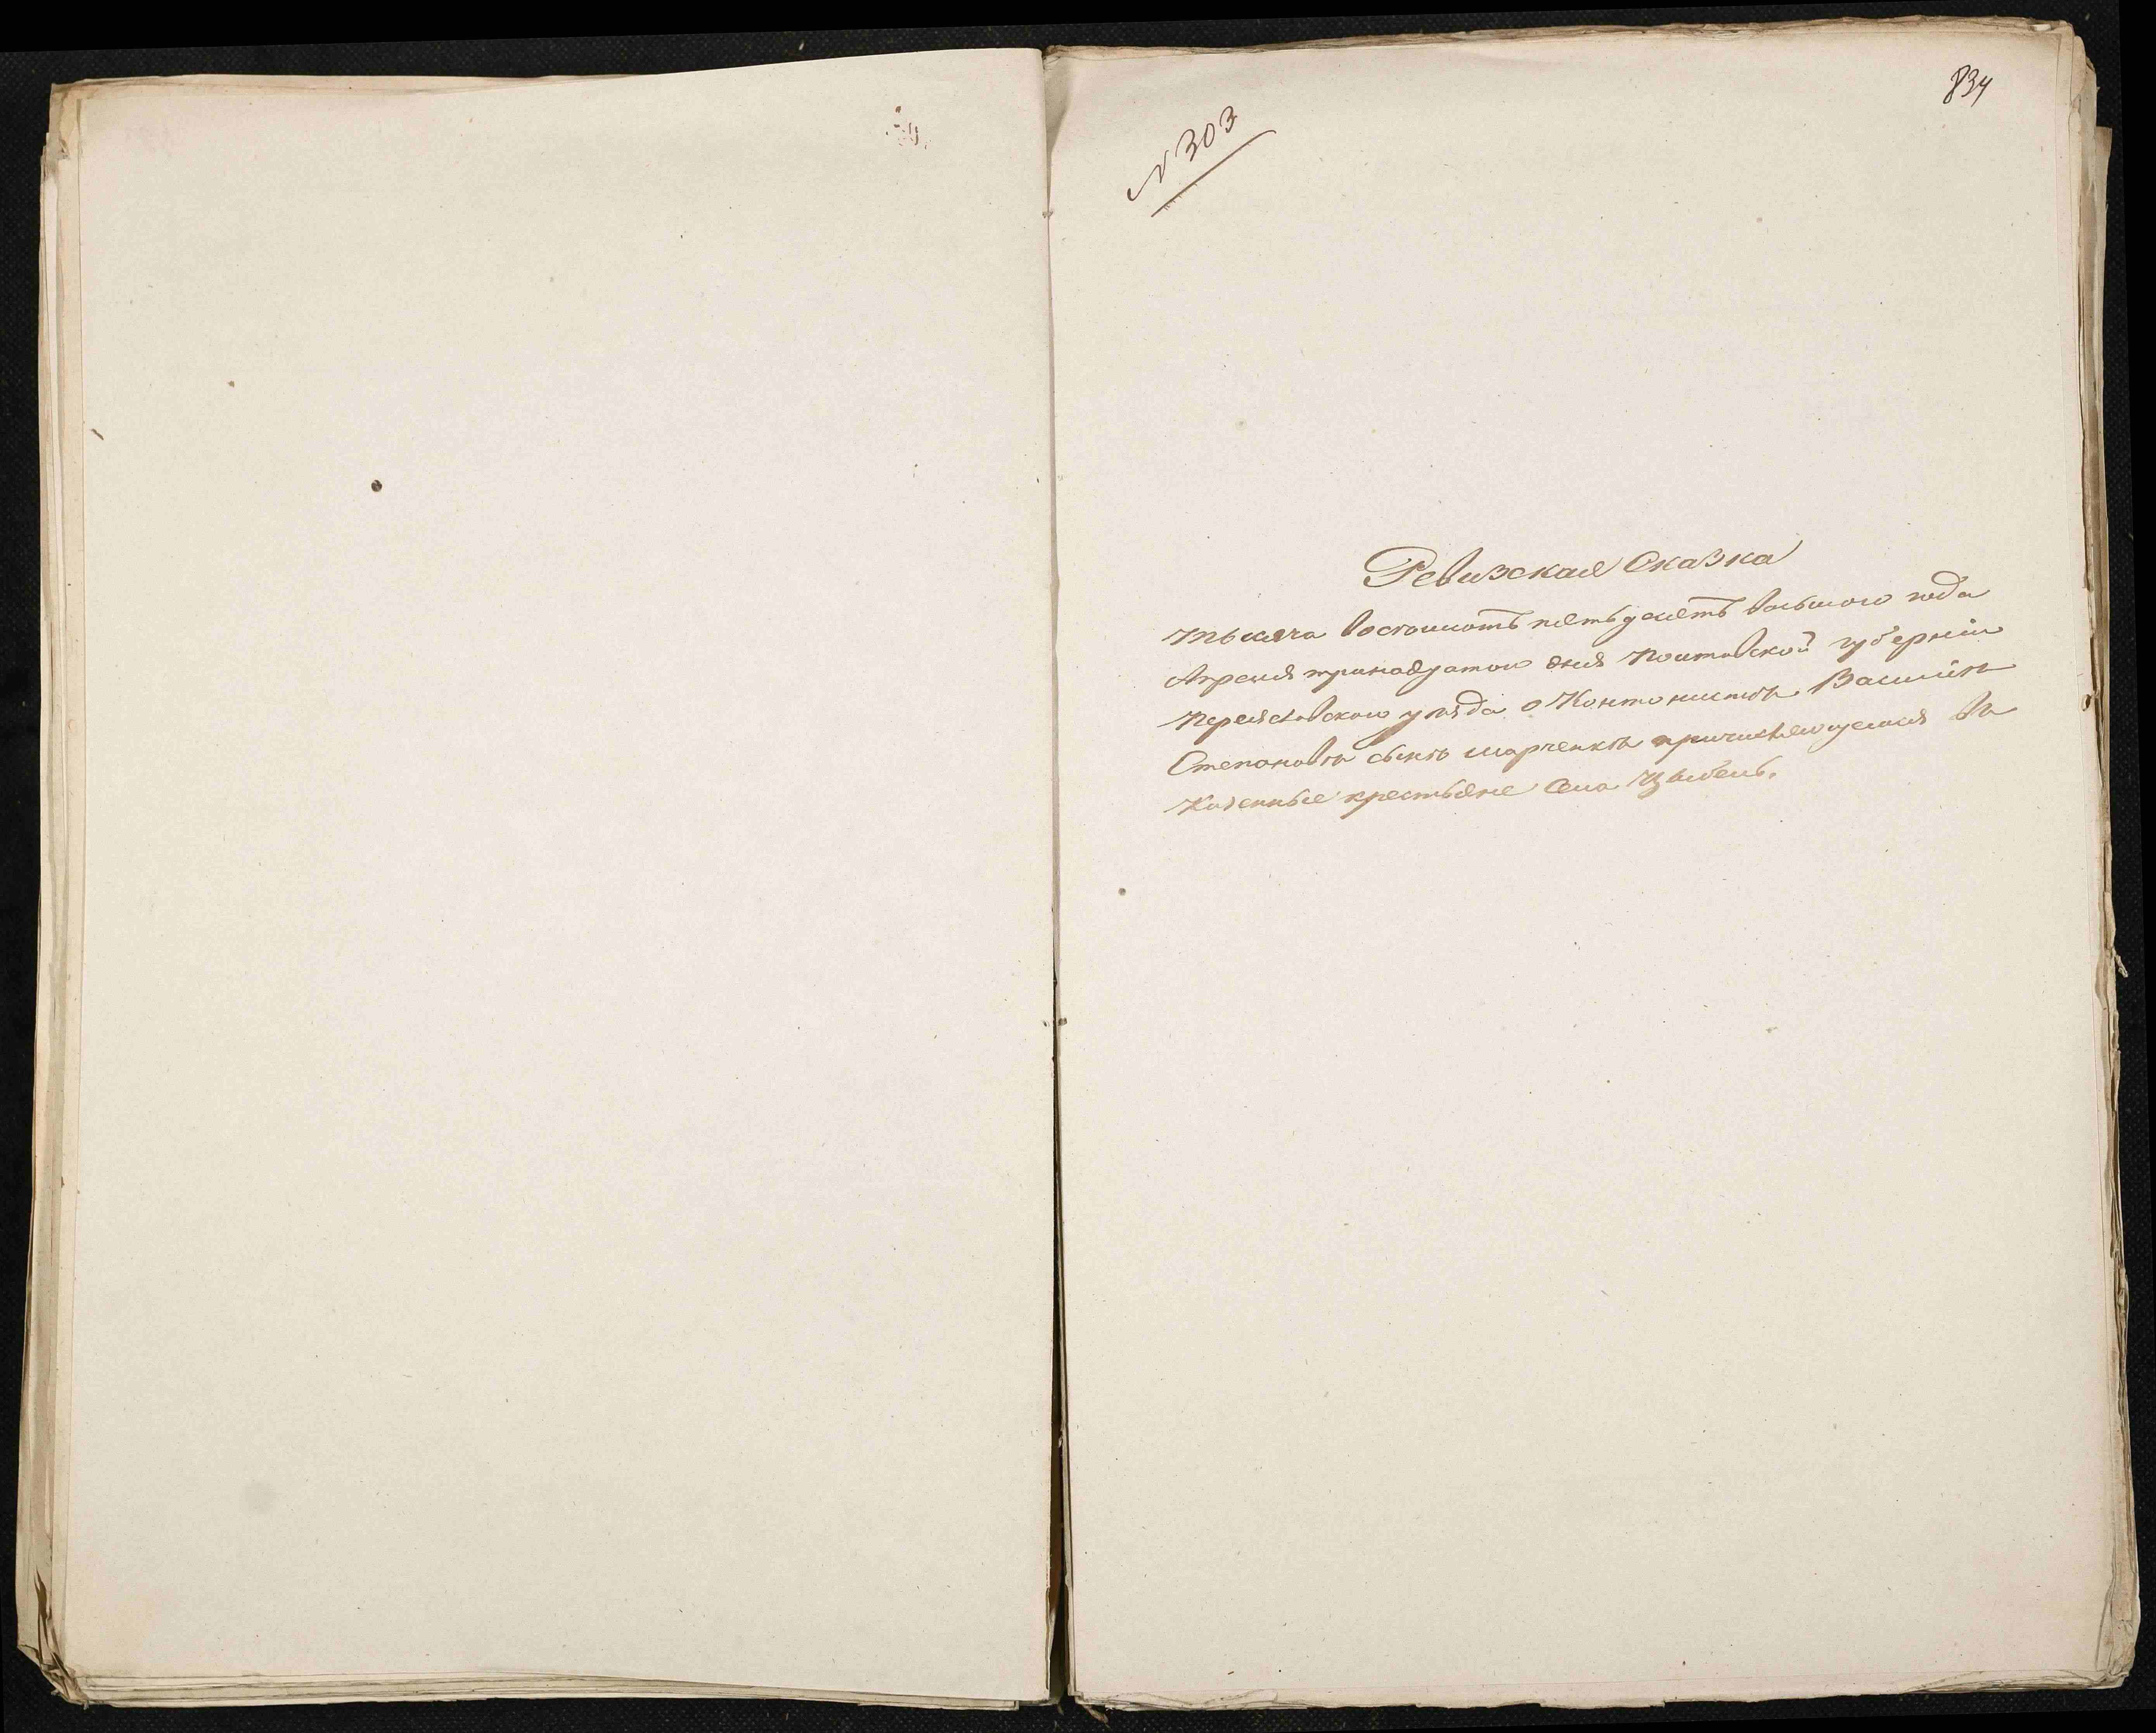 834
N 303
Ревизская Сказка
тысяча восемьсотъ пятьдесятъ восьмого года
Апреля тринадцатого дня Полтавской губерніи
Переяславского уезда о Кантонистѣ Василіѣ
Степановѣ сынѣ Марченкѣ причисляющемся въ
Казенные крестьяне села Цыбель.